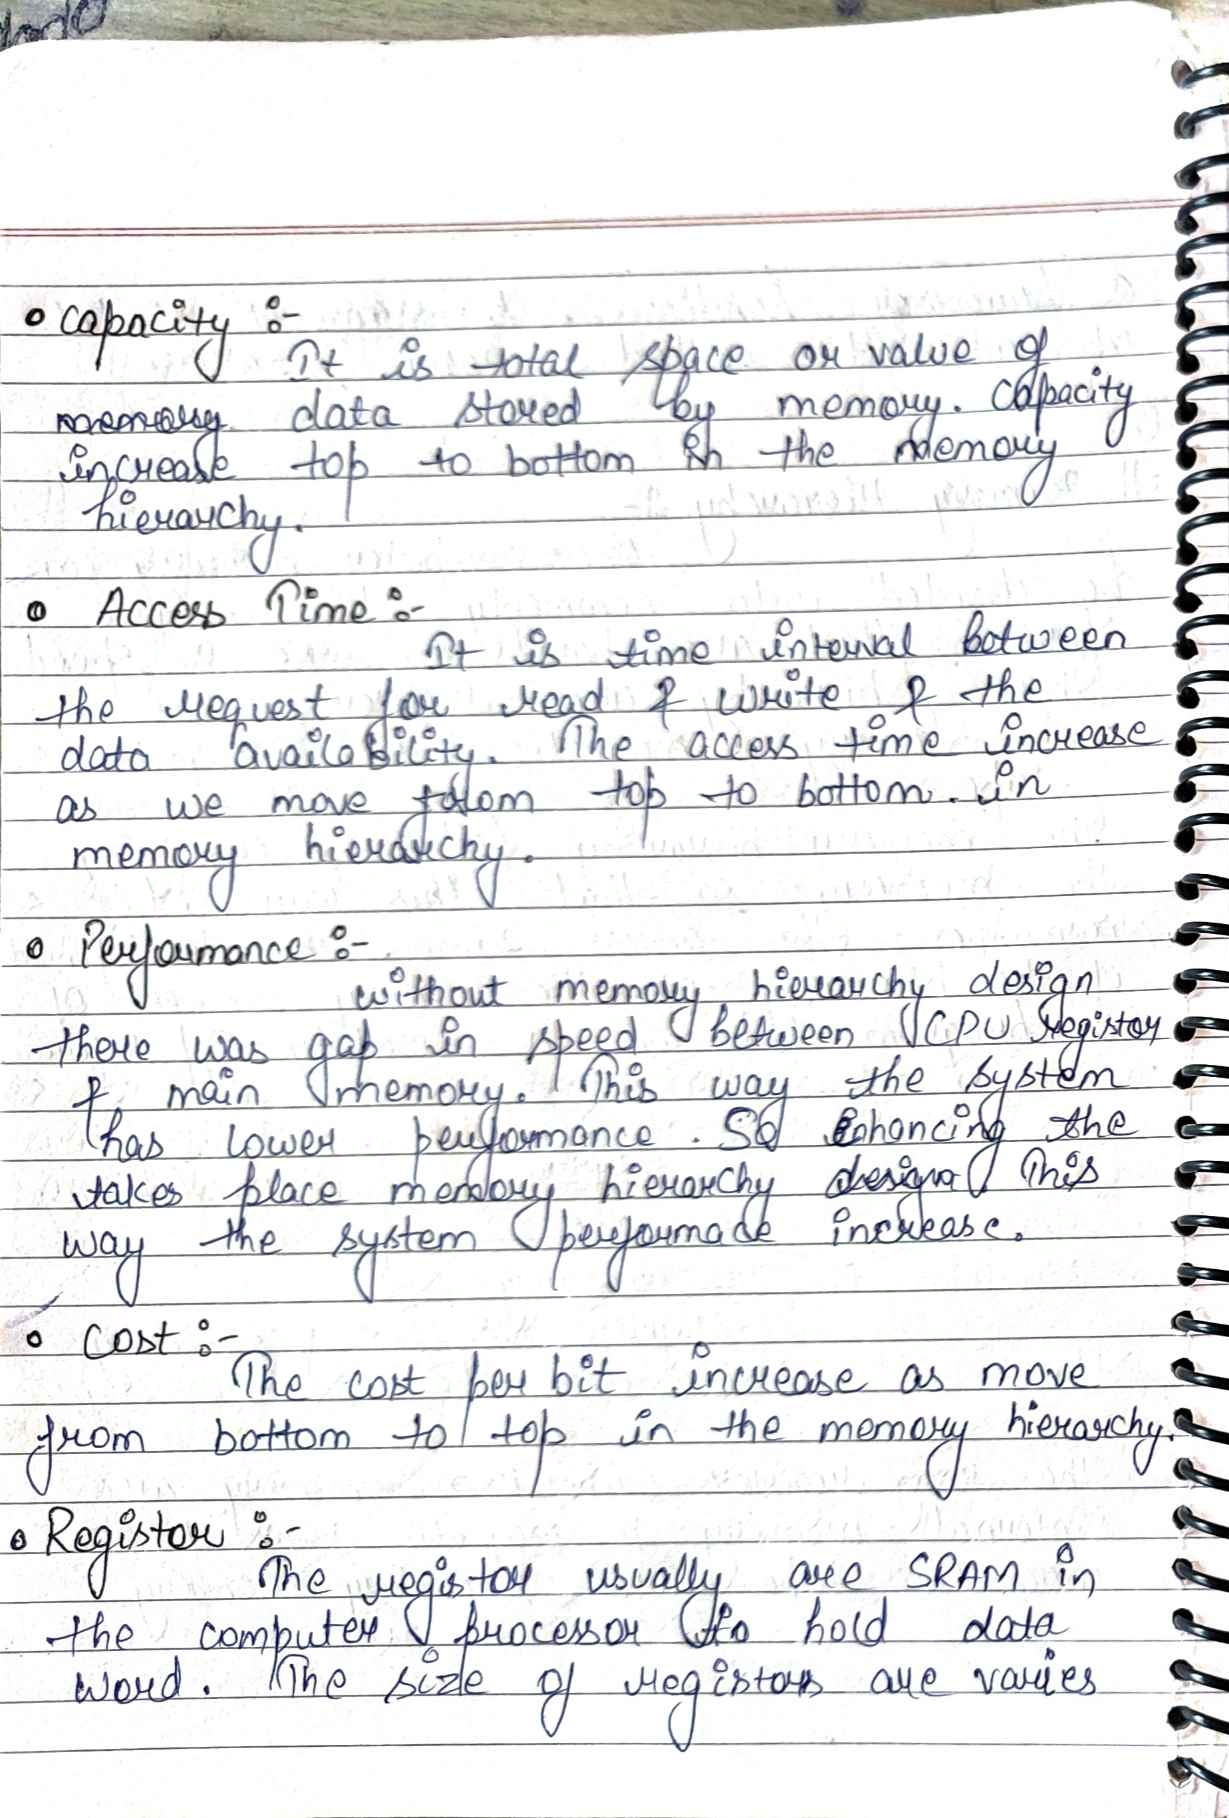 • Capacity :-
It is total space or value of
memory data stored by memory. Capacity
increase top to bottom in the memory
hierarchy.
• Access Time :-
It is time interval between
the request for read & write & the
data availability. The access time increase
as we move from top to bottom. in
memory hierarchy.
• Performance :-
without memory hierarchy design
there was gap in speed between CPU registor
& main memory. This way the system
has lower performance. So enhancing the
takes place memory hierarchy design This
way the system performade increase.
• Cost :-
The cost per bit increase as move
from bottom to top in the memory hierarchy.
• Registor :-
The registor usually are SRAM in
the computer processor to hold data
word. The size of registors are varies